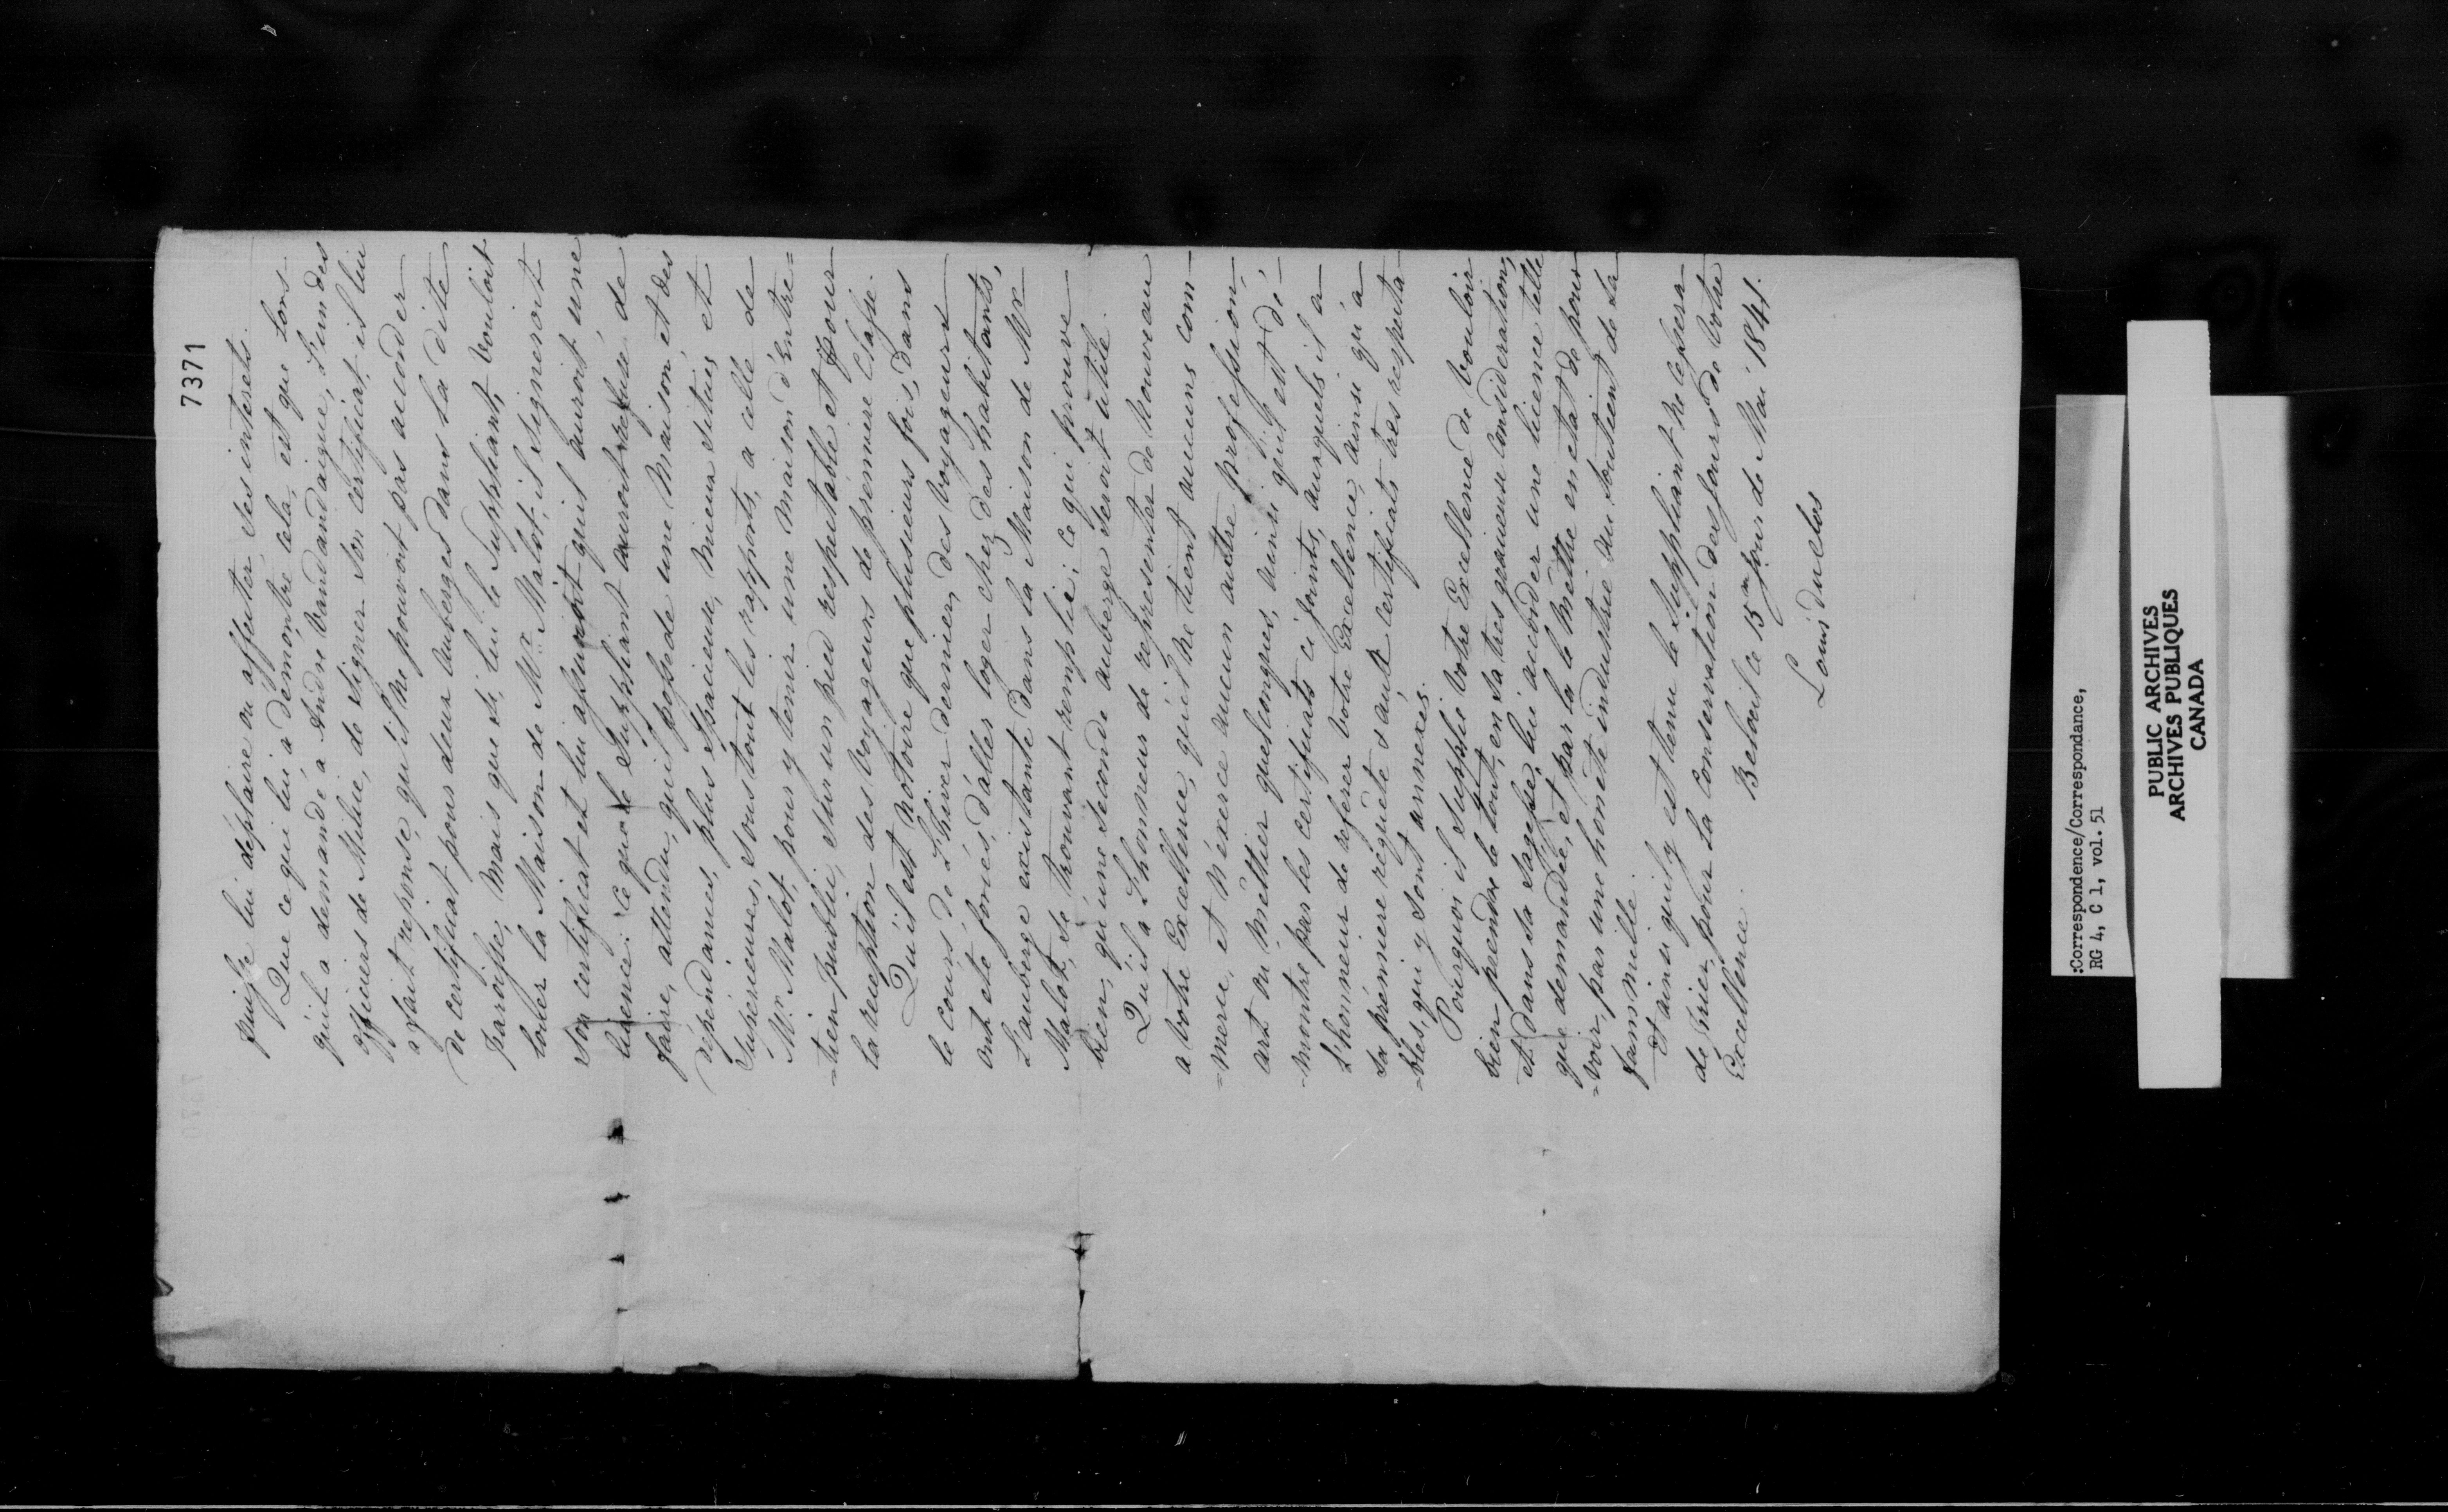 7371
puisse lui déplaire ou affecter, ses interets.
Que ce qui lui a démontré cela, est que lors
qu'il a demandé a André Vandandaigue, l'un des
officiers de Milice, de signer son certificat, il lui
a fait réponse, qu'il ne pouvoit pas accorder
de certificat pour deux auberges dans la dite
paroisse, mais que si, lui le Suppliant, vouloit
louer la Maison de Mr. Malot, il signeroit
son certificat et lui assuroit qu'il auroit une
licence: ce que le Suppliant auroit refusé, de
faire, attendu, qu'il possede une Maison, et des
dépendances, plus spacieuse, mieux situés, et
Superieures, sous tout les rapports, a celle de
Mr. Malot, pour y tenir une maison d'Entre=
=tien public, sur un pied respectable et pour
la reception des Voyageurs de premiere Classe.
Qu'il est notoire que plusieurs fois, dans
le cours de L'hiver dernier, des Voyageurs
ont eté forcés, d'aller loger chez des habitants,
L'auberge existante dans la Maison de Mr
Malot, se trouvant remplie; ce qui prouve
bien, qu'une seconde auberge seroit utile.
Qu'il a L'honneur de représenter de nouveau
a Votre Excellence, qu'il ne tient aucuns com-
=merce, et n'éxerce aucun autre profession,
art ou métier quelconques, ainsi qu'il est dé-
-montré par les certificats ci joints, auxquels il a
L'honneur de referer Votre Excellence, ainsi qu'a
sa prémiere réquête & aux certificats tres respecta-
=bles, qui y sont annexés.
Pourquoi il Supplie Votre Excellence de vouloir
bien prendre le tout, en sa tres gracieuse consideration,
et dans sa sagesse, lui accorder une licence telle
que demandée, et par la le mettre en etat de pour
=voir, par une honête industrie au soutient de sa
fammille.
Et ainsi qu'il y est tenu le Suppliant ne cessera
de prier, pour la conservation des jours de Votre
Excellence. Beloeil ce 15me jour de Mai 1841.
Louis duclos
:Correspondence/Correspondance,
RG 4, C 1, vol. 51
PUBLIC ARCHIVES
ARCHIVES PUBLIQUES
CANADA